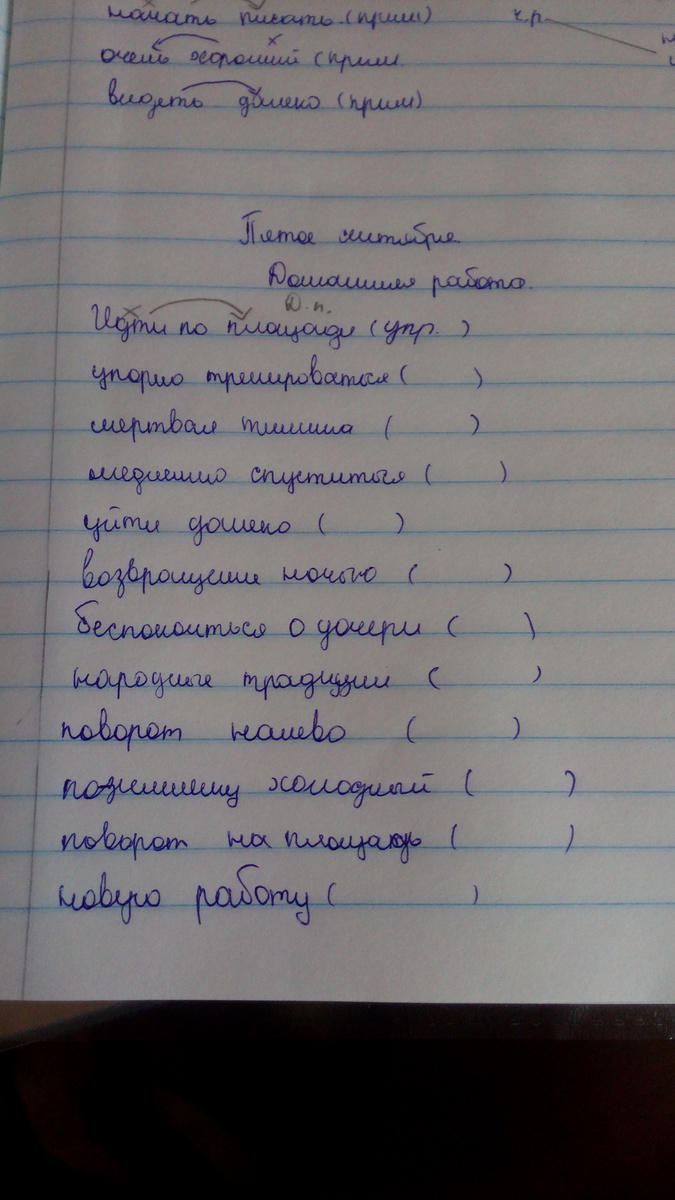 начать писать (прим) ч.р.
очень хороший (прим
видеть далеко (прим)
Пятое сентября
Домашняя работа.
Д.п.
Идти по площади (упр. )
упорно тренироваться ( )
мертвая тишина ( )
медленно спуститься ( )
уйти далеко ( )
возвращение ночью ( )
беспокоиться о дочери ( )
народные традиции ( )
поворот налево ( )
позимнему холодный ( )
поворот на площадь ( )
новую работу ( )